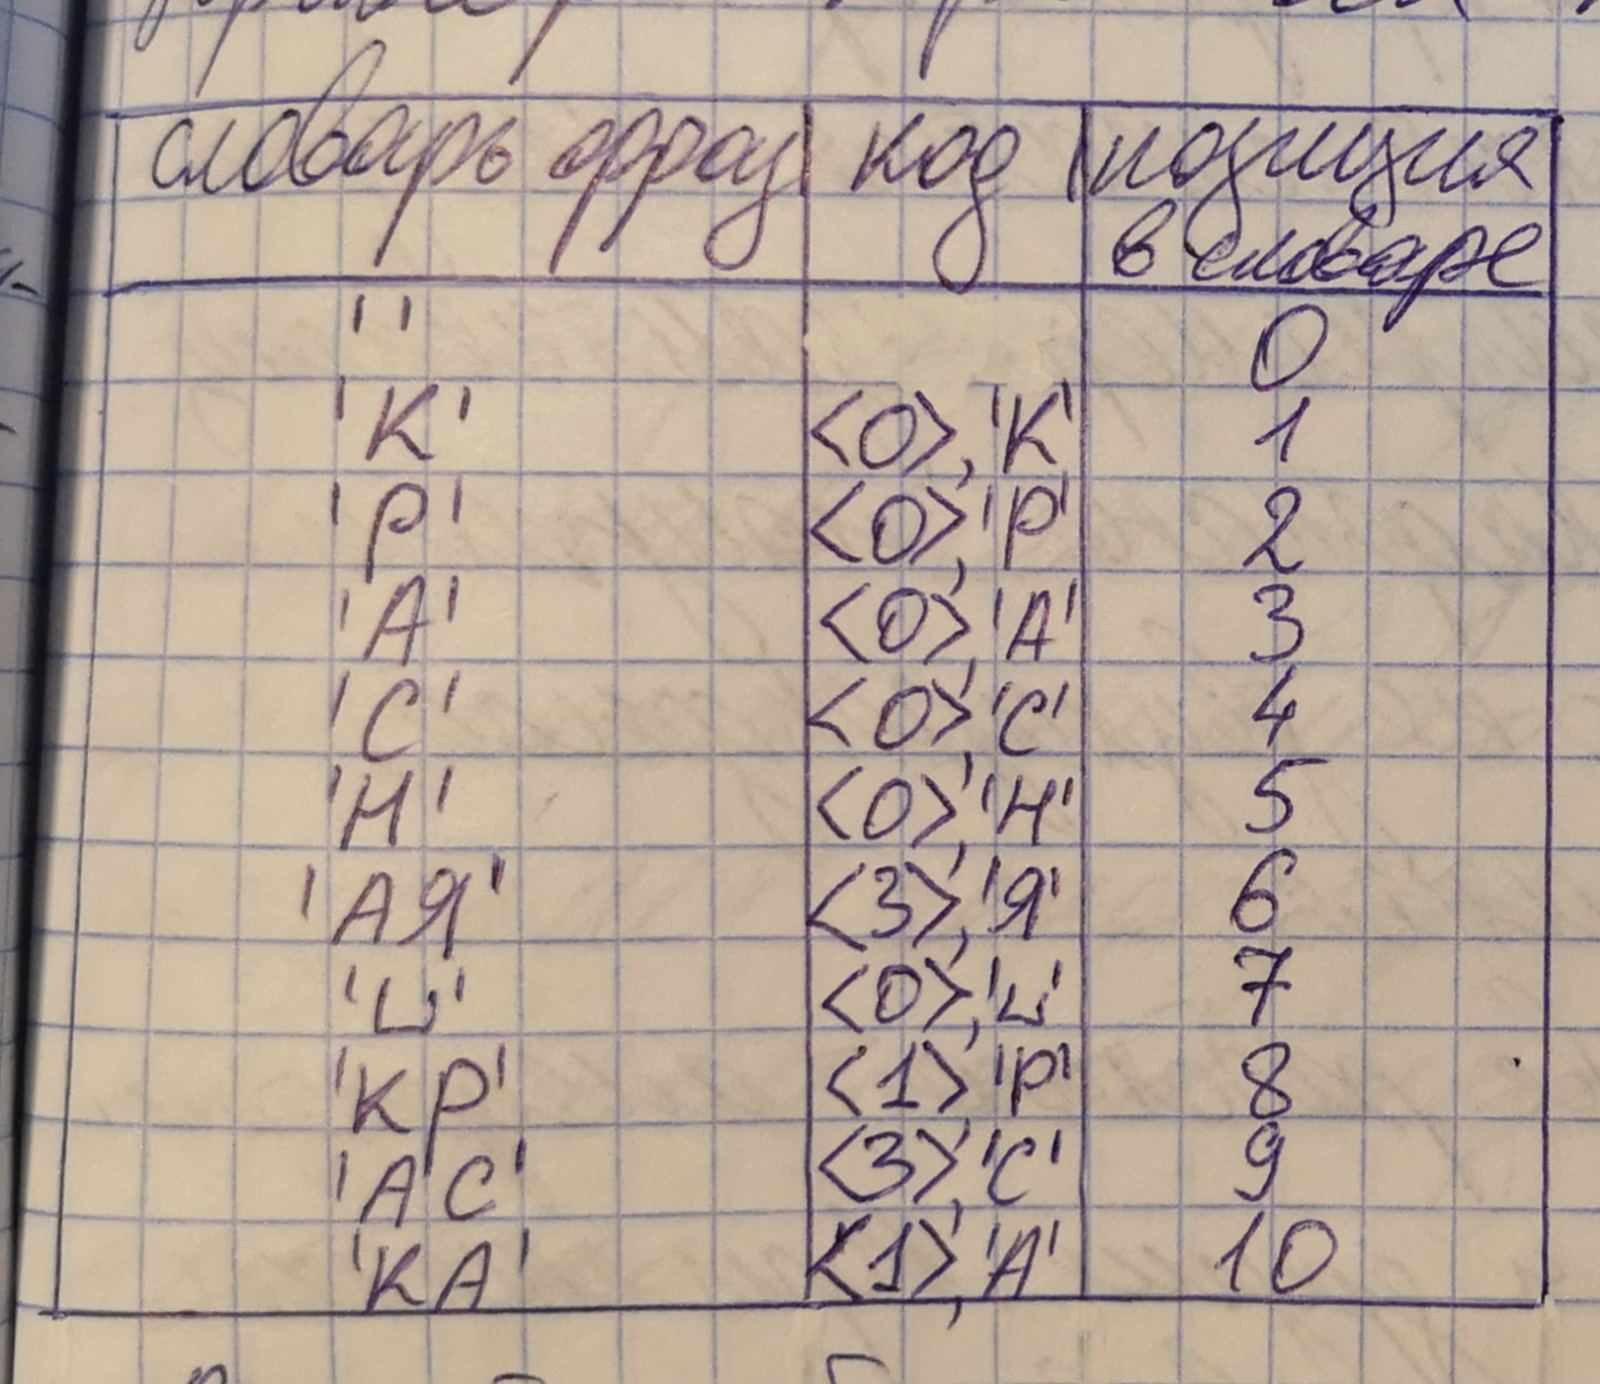 словарь фраз код позиция
в словаре
'' 0
'К' <0>,'К' 1
'Р' <0>,'Р' 2
'А' <0>,'А' 3
'С' <0>,'С' 4
'Н' <0>,'Н' 5
'АЯ' <3>,'Я' 6
'␣' <0>,'␣' 7
'КР' <1>,'Р' 8
'АС' <3>,'С' 9
'КА' <1>,'А' 10